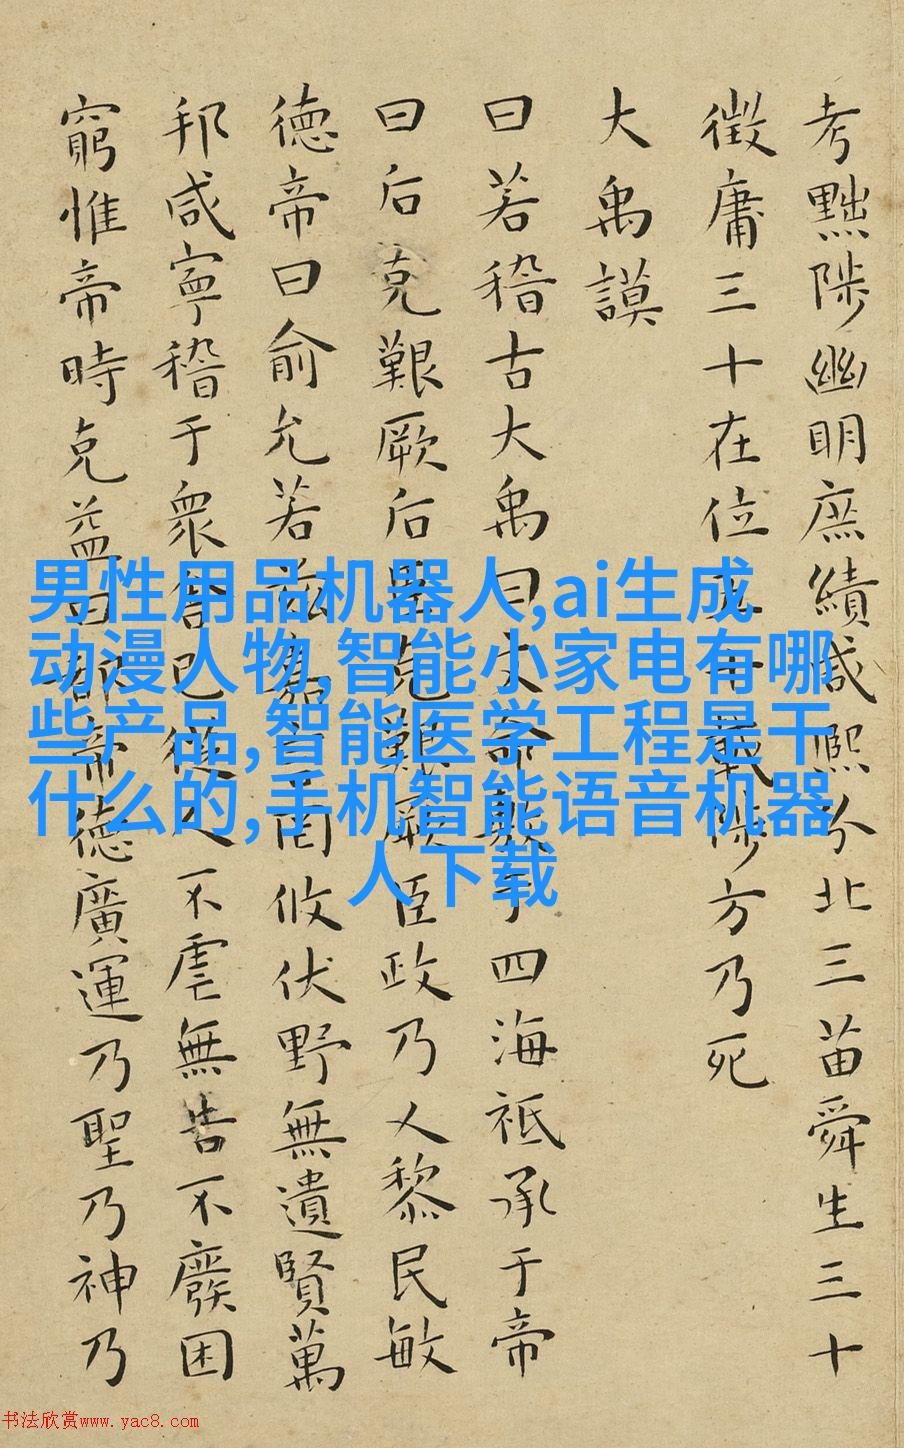 考黜陟幽明庶績咸熙分北三苗舜生三十
徵庸三十在位五十載陟方乃死
大禹謨
曰若稽古大禹曰文命敷于四海祗承于帝
曰后克艱厥后臣克艱厥臣政乃乂黎民敏
德帝曰俞允若茲嘉言罔攸伏野無遺賢萬
邦咸寧稽于眾舍己從人不虐無告不廢困
窮惟帝時克益曰都帝德廣運乃聖乃神乃
男性用品机器人,ai生成
动漫人物,智能小家电有哪
些产品,智能医学工程是干
什么的,手机智能语音机器
人下载
书法欣赏www.yac8.com